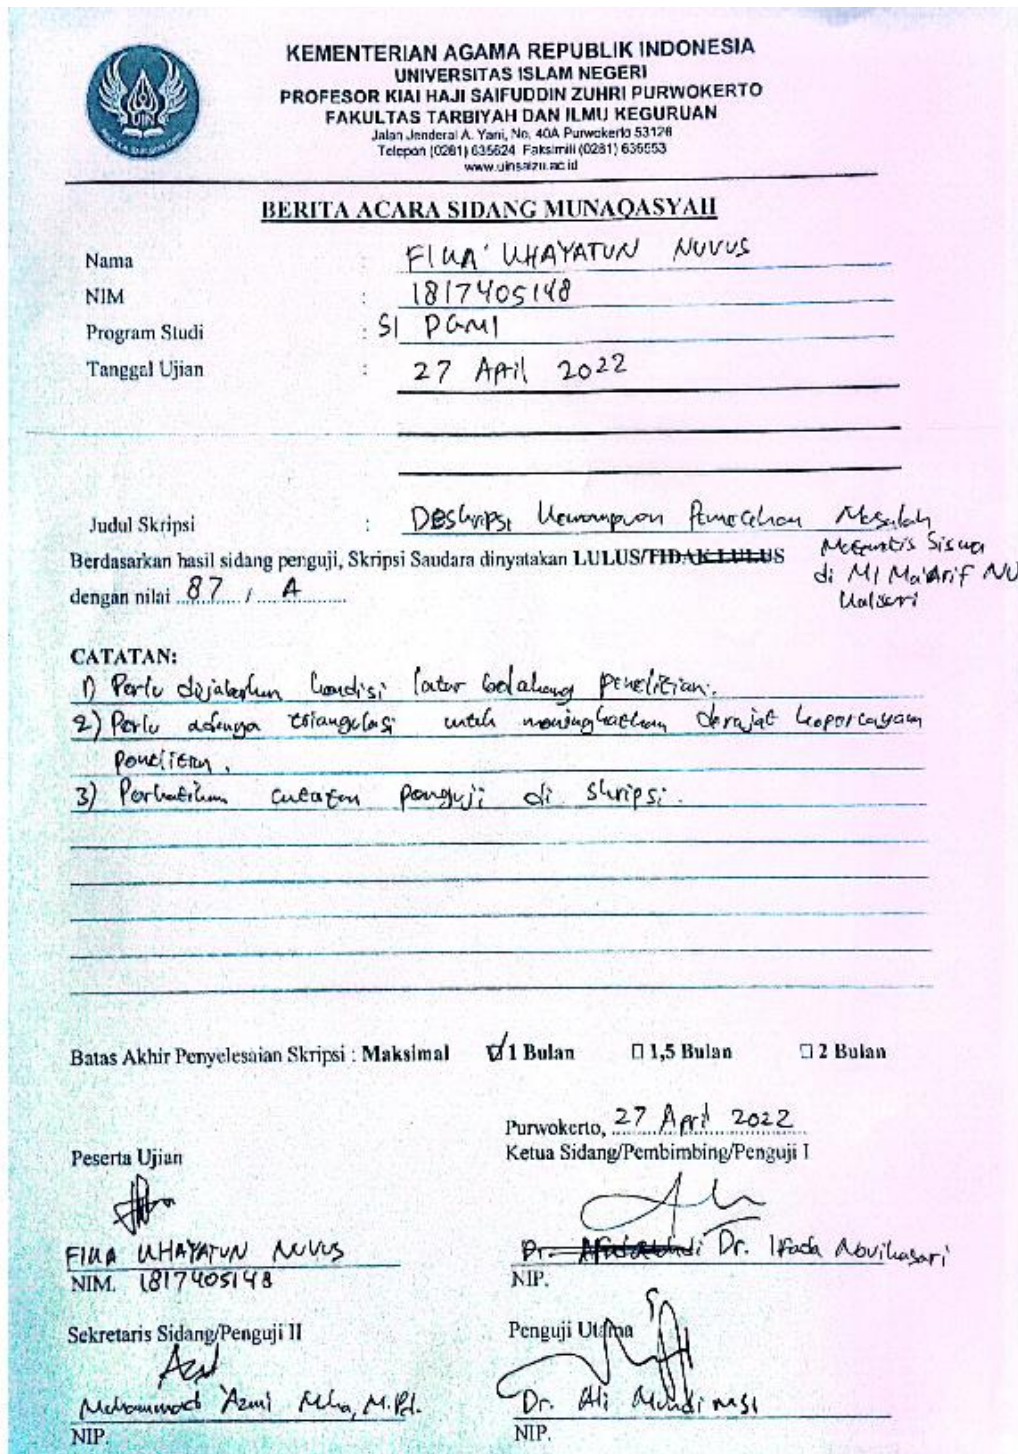 UIN
KEMENTERIAN AGAMA REPUBLIK INDONESIA
UNIVERSITAS ISLAM NEGERI
PROFESOR KIAI HAJI SAIFUDDIN ZUHRI PURWOKERTO
FAKULTAS TARBIYAH DAN ILMU KEGURUAN
Jalan Jenderal A. Yani, No. 40A Purwokerto 53126
Telepon (0281) 635624 Faksimili (0281) 635553
www.uinsaizu.ac.id
BERITA ACARA SIDANG MUNAQASYAH
Nama : FIKA KHAYATUN NUVUS
NIM : 1817405148
Program Studi : S1 PGMI
Tanggal Ujian : 27 April 2022
Judul Skripsi : Deskripsi Kemampuan Pemecahan Masalah
Matematis Siswa
di MI Ma'arif NU
Kalisari
Berdasarkan hasil sidang penguji, Skripsi Saudara dinyatakan LULUS/TIDAK LULUS
dengan nilai 87 / A
CATATAN:
1) Perlu dijabarkan kondisi latar belakang penelitian.
2) Perlu adanya triangulasi untuk meningkatkan derajat kepercayaan
penelitian.
3) Perhatikan catatan penguji di skripsi.
Batas Akhir Penyelesaian Skripsi : Maksimal ☑ 1 Bulan ☐ 1,5 Bulan ☐ 2 Bulan
Purwokerto, 27 April 2022
Peserta Ujian
Ketua Sidang/Pembimbing/Penguji I
FIKA KHAYATUN NUVUS
NIM. 1817405148
Dr. Ifada Novikasari
NIP.
Sekretaris Sidang/Penguji II
Penguji Utama
Muhammad 'Azmi M.Pd.
NIP.
Dr. Ali Muhdi MSI
NIP.